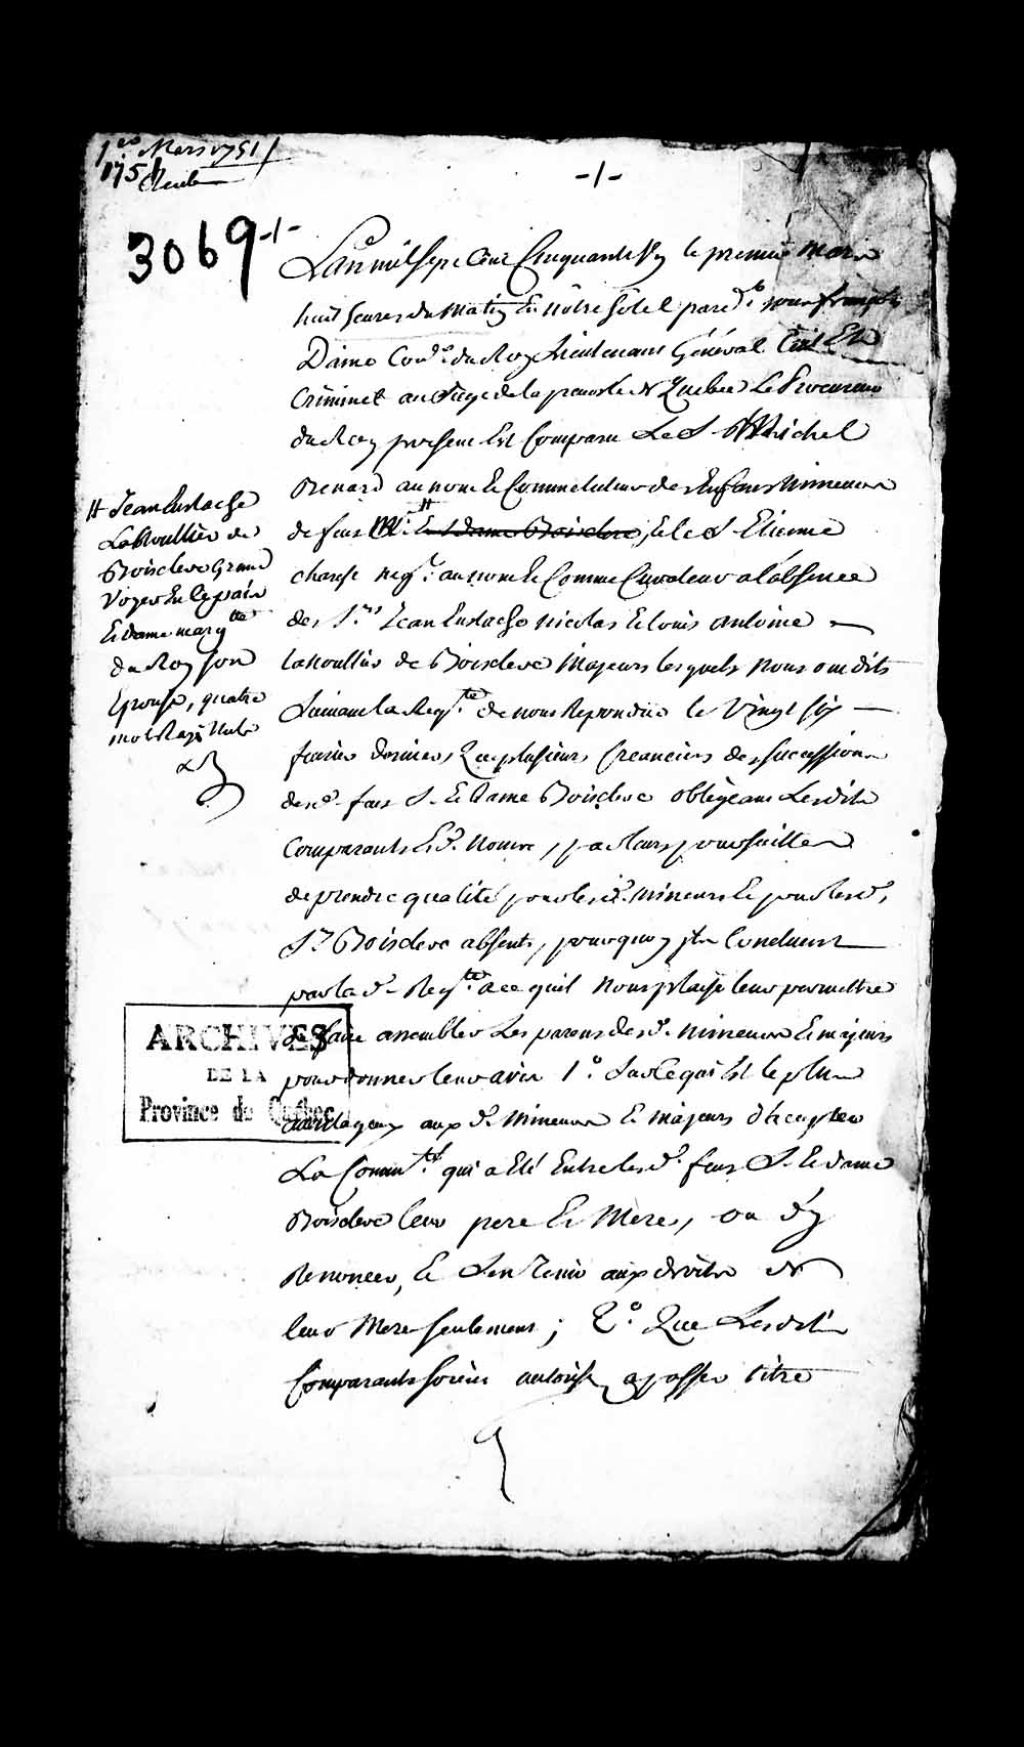 1er Mars 1751
1751
-1-
3069 -1-
L'an mil sept cent Cinquante Un le premier mars
huit heures du matin En nôtre hôtel pard. nous françois
Daine Conr. du Roy Lieutenant Général Civil Et
Criminel au siege de la prevosté de Quebec Le Procureur
du Roy present Est Comparu Le S. Michel
Benard au nom Et Comme tuteur des Enfans Mineurs
de feus Mr. # Et dame Boisclerc, Et le S. Etienne
charest neg.t au nom Et Comme Curateur a l'absence
des S.rs Jean Eustache Nicolas Et louis antoine
lanoullier de Boisclerc Majeurs lesquels Nous ont dits
Suivant la Req.te de nous Repondue le Vingt six
fevrier dernier, Que plusieurs Creanciers des successions
desd. feus S. Et Dame Boisclerc obligeant Lesdits
Comparants Esd. Noms, par leurs poursuittes
de prendre qualité pour lesd. mineurs Et pour lesd.
S.rs Boisclerc absents, pourquoy ils Concluent
par lad. Req.te a ce quil Nous plaise leur permettre
de faire assembler Les parens desd. mineurs Et majeurs
pour donner leur avis 1.o Sur Ce qui Est le plus
avantageux aux d. Mineurs Et Majeurs d'accepter
La Comm.té qui a Eté Entre lesd. feus S. Et dame
Boisclerc leur pere Et Mere, ou d'y
Renoncer, Et S'en Tenir aux droits de
leur Mere seulement; 2.o Que Lesdits
Comparants soient autorisés a passer titre
# Jean Eustache
LaNoullier de
Boisclerc Grand
Voyer En Ce païs
Et dame marg.tte
du Roy son
Epouse, quatre
mots Rayés Nuls
ARCHIVES
DE LA
Province de Québec